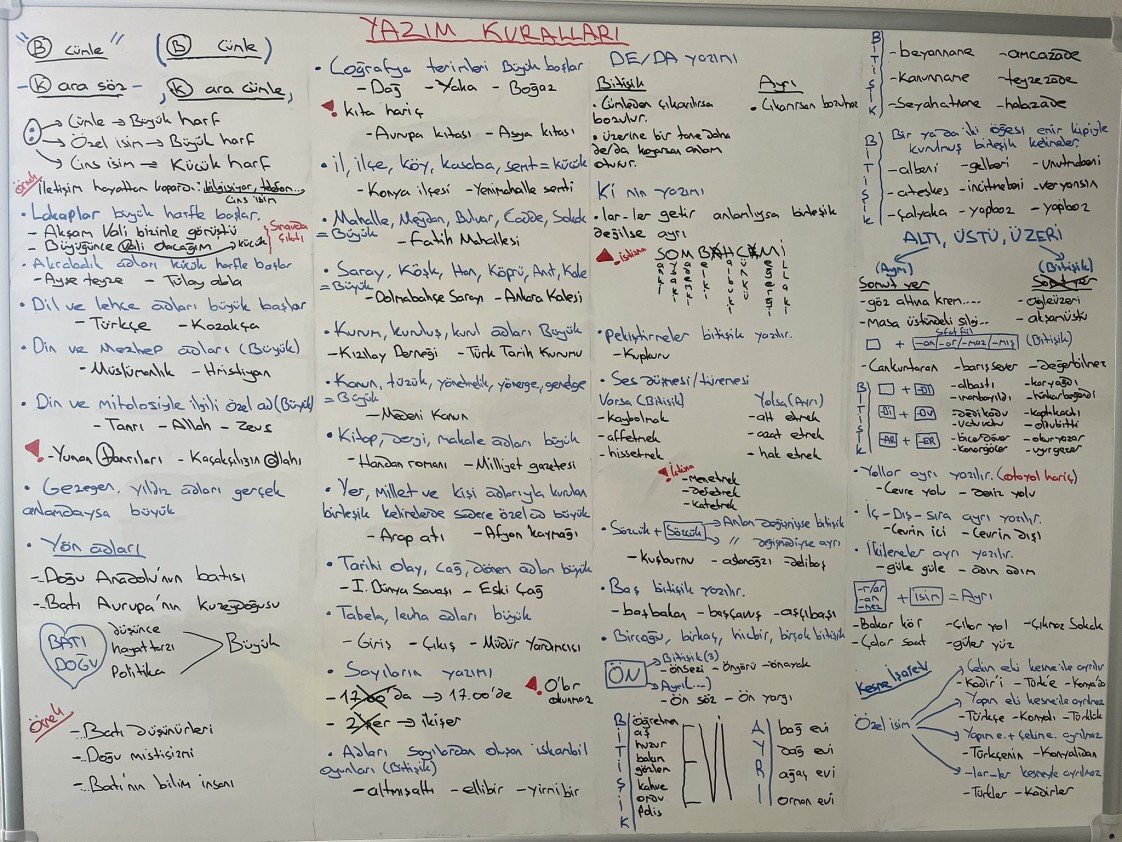 YAZIM KURALLARI
"(B) cümle" ((B) cümle)
-(K) ara söz- , (K) ara cümle,
: → Cümle → Büyük harf
→ Özel isim → Büyük harf
→ Cins isim → Küçük harf
Örnek İletişim hayattan kopardı: bilgisiyar, telefon...
Cins isim
• Lakaplar büyük harfle başlar.
- Akşam Vali bizimle görüştü
- Büyüğünce vali olacağım → küçük
Sınavda çıktı
• Akrabalık adları küçük harfle başlar
- Ayşe teyze - Tülay abla
• Dil ve lehçe adları büyük başlar
- Türkçe - Kazakça
• Din ve Mezhep adları (Büyük)
- Müslümanlık - Hristiyan
• Din ve mitolosiyle ilgili özel ad (Büyük)
- Tanrı - Allah - Zeus
! - Yunan tanrıları - Kaçakçılığın allahı
• Gezegen, yıldız adları gerçek
anlamdaysa büyük
• Yön adları
- Doğu Anadolu'nun batısı
- Batı Avrupa'nın kuzeydoğusu
BATI
DOĞU
düşünce
hayat tarzı
Politika
Büyük
Örnek
- Batı düşünürleri
- Doğu mistisizmi
- Batı'nın bilim insanı
• Coğrafya terimleri Büyük başlar
- Dağ - Yaka - Boğaz
! kıta hariç
- Avrupa kıtası - Asya kıtası
• İl, ilçe, köy, kasaba, semt = küçük
- Konya ilçesi - Yenimahalle semti
• Mahalle, Meydan, Bulvar, Cadde, Sokak
= Büyük - Fatih Mahallesi
• Saray, Köşk, Han, Köprü, Anıt, Kale
= Büyük - Dolmabahçe Sarayı - Ankara Kalesi
• Kurum, kuruluş, kurul adları Büyük
- Kızılay Derneği - Türk Tarih Kurumu
• Kanun, tüzük, yönetmelik, yönerge, genelge
= Büyük
- Medeni Kanun
• Kitap, dergi, makale adları büyük
- Handan romanı - Milliyet gazetesi
• Yer, Millet ve kişi adlarıyla kurulan
birleşik kelimelerde sadece özel ad büyük
- Arap atı - Afyon kaymağı
• Tarihi olay, çağ, dönem adları büyük
- I. Dünya Savaşı - Eski Çağ
• Tabela, levha adları büyük
- Giriş - Çıkış - Müdür Yardımcısı
• Sayıların yazımı
- 17.00'da → 17.00'de ! 0'lar okunmaz
- 2'şer → ikişer
• Adları sayılardan oluşan iskambil
oyunları (Bitişik)
- altmışaltı - ellibir - yirmibir
DE/DA yazımı
Bitişik
• Cümleden çıkarılırsa
bozulur.
• üzerine bir tane daha
de/da koyarsan anlam
oturur.
Ayrı
• Çıkarırsan bozulmaz
Ki nin yazımı
• lar-ler getir anlamlıysa birleşik
değilse ayrı
! istisna SOMBAHÇEMİ
• Pekiştirmeler bitişik yazılır.
- Kupkuru
• Ses düşmesi/türemesi
Varsa (Bitişik) Yoksa (Ayrı)
- kaybolmak - alt etmek
- affetmek - azat etmek
- hissetmek - hak etmek
! İstisna
- menetmek
- defetmek
- katetmek
• Sözcük + Sözcük → Anlam değişmişse bitişik
→ " değişmediyse ayrı
- Kuşburnu - aslanağzı - deliboş
• Baş bitişik yazılır.
- başbakan - başçavuş - aşçıbaşı
• Birçoğu, birkaç, hiçbir, birçok bitişik
ÖN
→ Bitişik(3)
- önsezi - öngörü - önayak
→ Ayrı(...)
- Ön söz - Ön yargı
BİTİŞİK
öğretmen
aş
huzur
bakım
gözlem
kahve
ordu
polis
EVİ
AYRI
bağ evi
dağ evi
ağaç evi
orman evi
BİTİŞİK
- beyanname - amcazade
- Kanunname - teyzezade
- Seyahatname - halazade
BİTİŞİK
Bir ya da iki öğesi emir kipiyle
kurulmuş bitişik kelimeler.
- albeni - gelberi - unutmabeni
- ateşkes - incitmebeni - veryansın
- çalyaka - yapboz - yapboz
ALTI, ÜSTÜ, ÜZERİ
(Ayrı) (Bitişik)
Somut yer Somut yer
- göz altına krem.... - öğleüzeri
- Masa üstündeki silgi... - akşamüstü
Sıfat fiil
□ + -an/-ar/-maz/-mış (Bitişik)
- Cankurtaran - barışsever - değerbilmez
BİTİŞİK
□ + -DI
- albastı - karyağdı
- imambayıldı - hünkarbeğendi
-Dı + -Dı
- dedikodu - kaptıkaçtı
- uçtuuçtu - oldubitti
-AR + -ER
- biçerdöver - okuryazar
- konargöçer - uyurgezer
• Yollar ayrı yazılır. (otoyol hariç)
- Çevre yolu - deniz yolu
• İç-Dış-sıra ayrı yazılır.
- Çevrim içi - Çevrim dışı
• İkilemeler ayrı yazılır.
- güle güle - adım adım
-r/ar
-an
-mez
+ isim = Ayrı
- Bakar kör - Çıkar yol - Çıkmaz Sokak
- Çalar saat - güler yüz
Kesme İşareti
Özel isim
→ Çekim eki kesme ile ayrılır
- Kadir'i - Türk'e - Konya'da
→ Yapım eki kesme ile ayrılmaz
- Türkçe - Konyalı - Türklük
→ Yapım e. + çekim e. ayrılmaz
- Türkçenin - Konyalıdan
→ -lar-ler kesmeyle ayrılmaz
- Türkler - Kadirler